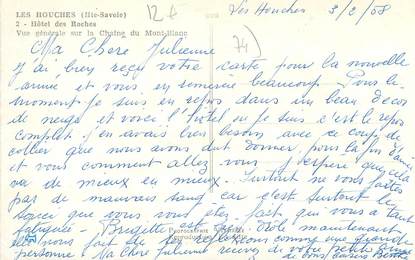 LES HOUCHES (Hte-Savoie)
2 - Hôtel des Roches
Vue générale sur la Chaîne du Mont-Blanc
12 F
74
Les Houches 3/2/58
Ma Chère Julienne
J'ai bien reçu votre carte pour la nouvelle
année et vous en remercie beaucoup. Pour le
moment je suis en repos dans un beau décor
de neige et voici l'hôtel où je suis c'est le repos
complet. J'en avais bien besoin avec ce coup de
collier que nous avons dut donner pour la fin d'année
et vous comment allez vous j'espère que cela
va de mieux en mieux. Surtout ne vous faites
pas de mauvais sang car c'est surtout le
souci que vous vous êtes fait qui vous a tant
fatiguée - Brigitte est drole maintenant
elle nous fait de réflexions comme une grande
personne Ma Chère Julienne recevez de votre petite
de bons baisers